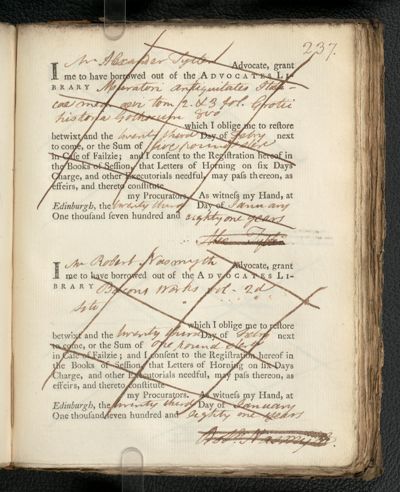 237.
I Mr Alexander Tytler Advocate, grant
me to have borrowed out of the ADVOCATES LI-
BRARY Muratori antiquitates Itali-
cae medii aevi tom 2. & 3 fol. Grotii
historia Gothorum 8vo
which I oblige me to restore
betwixt and the twenty third Day of Febry next
to come, or the Sum of five pound ster
in Case of Failzie; and I consent to the Registration hereof in
the Books of Session, that Letters of Horning on six Days
Charge, and other Executorials needful, may pass thereon, as
effeirs, and thereto constitute
my Procurators. As witness my Hand, at
Edinburgh, the twenty third Day of January
One thousand seven hundred and eighty one years
Tytler
I Mr Robert Naesmyth Advocate, grant
me to have borrowed out of the ADVOCATES LI-
BRARY Bacons Works vol. 2d
which I oblige me to restore
betwixt and the twenty third Day of Febry next
to come, or the Sum of One pound ster
in Case of Failzie; and I consent to the Registration hereof in
the Books of Session, that Letters of Horning on six Days
Charge, and other Executorials needful, may pass thereon, as
effeirs, and thereto constitute
my Procurators. As witness my Hand, at
Edinburgh, the twenty third Day of January
One thousand seven hundred and eighty one years